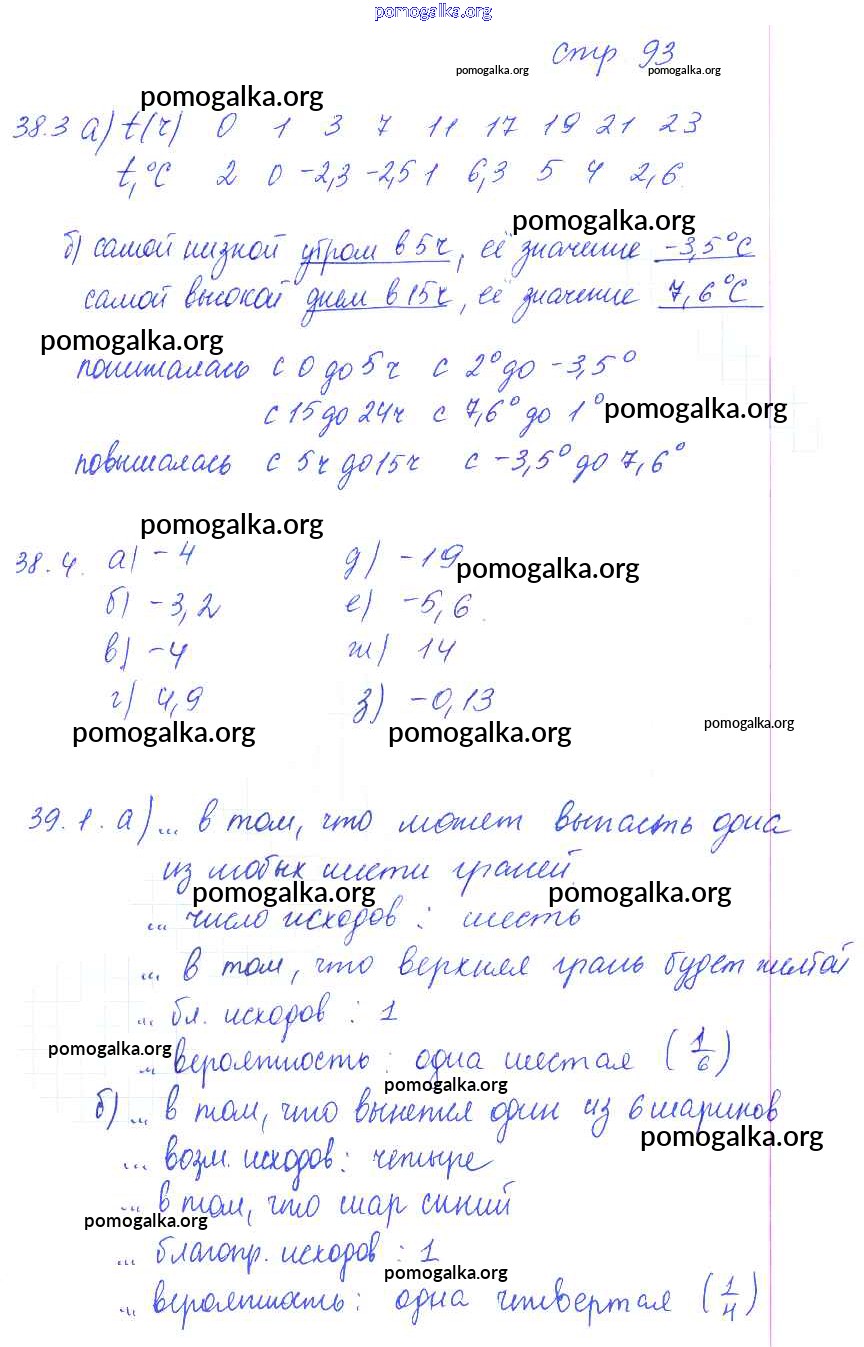 pomogalka.org
стр 93
pomogalka.org pomogalka.org
pomogalka.org
38.3 а) t(ч) 0 1 3 7 11 17 19 21 23
t,°C 2 0 -2,3 -2,5 1 6,3 5 4 2,6.
pomogalka.org
б) самой низкой утром в 5ч, её значение -3,5°C
самой высокой днем в 15ч, её значение 7,6°C
pomogalka.org
понижалась с 0 до 5ч с 2° до -3,5°
с 15 до 24ч с 7,6° до 1° pomogalka.org
повышалась с 5ч до 15ч с -3,5° до 7,6°
pomogalka.org
38.4. а) -4 д) -19 pomogalka.org
б) -3,2 е) -5,6.
в) -4 ж) 14
г) 4,9 з) -0,13
pomogalka.org pomogalka.org pomogalka.org
39.1. а) ... в том, что может выпасть одна
из любых шести граней
pomogalka.org pomogalka.org
... число исходов: шесть
... в том, что верхняя грань будет желтой
... бл. исходов: 1
pomogalka.org
... вероятность: одна шестая (1/6)
pomogalka.org
б) ... в том, что вынется один из 6 шариков
pomogalka.org
... возм. исходов: четыре
... в том, что шар синий
pomogalka.org
... благопр. исходов: 1
pomogalka.org
... вероятность: одна четвертая (1/4)